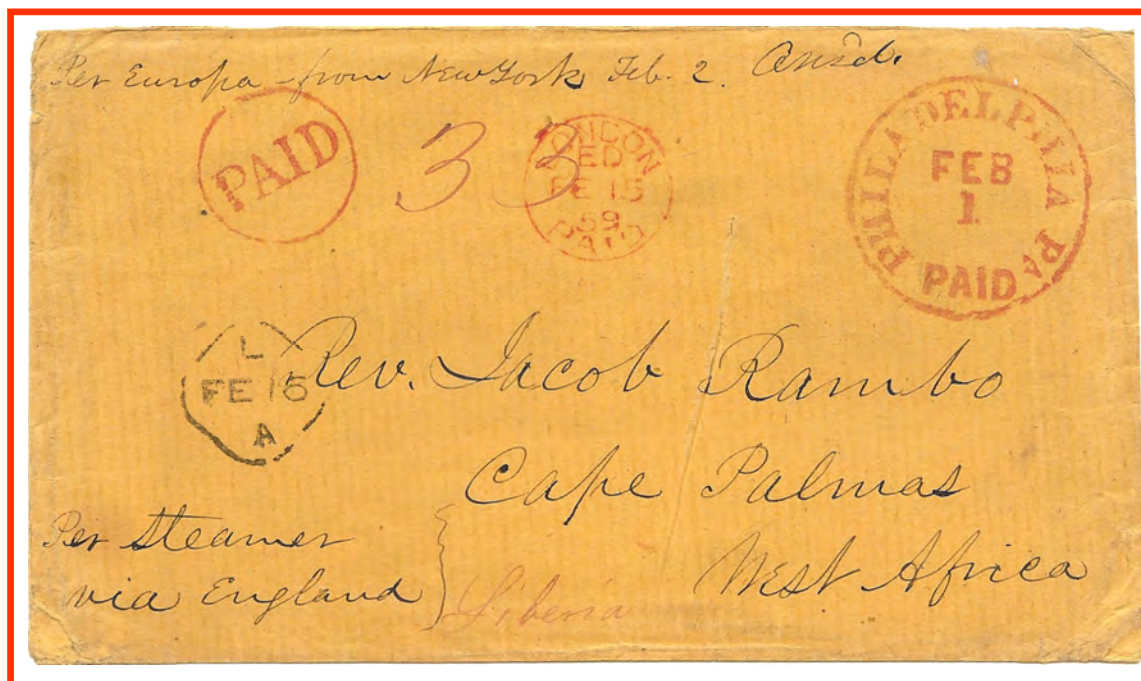 Per Europa - from New York Feb. 2. Ansd.
PAID
33
LONDON
ED
FE 15
59
PAID
PHILADELPHIA PA
FEB
1
PAID
L
FE 15
A
Rev. Jacob Rambo
Cape Palmas
West Africa
Per Steamer
via England
Liberia